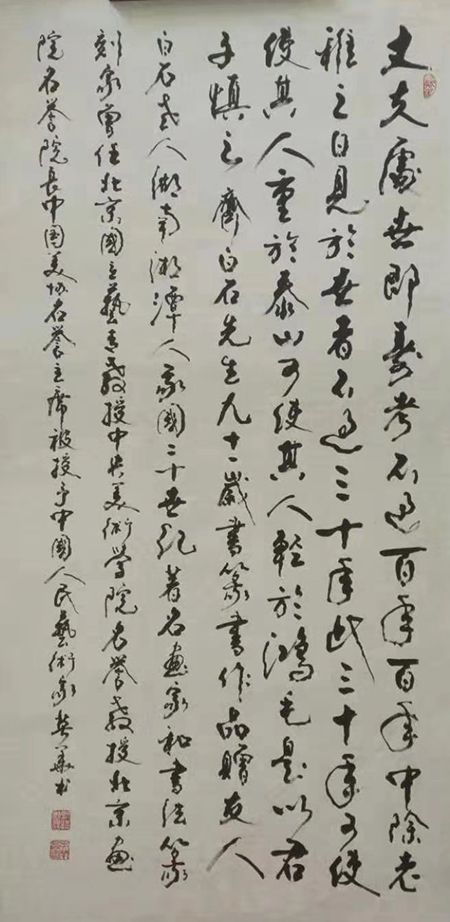 丈夫處世即壽考不過百年百年中除老
稚之日見於世者不過三十年此三十年可使
使其人重於泰山可使其人輕於鴻毛是以君
子慎之齊白石先生九十一歲書篆書作品贈友人
白石老人湖南湘潭人我國二十世紀著名畫家和書法篆
刻家曾任北京國立藝專教授中央美術學院名譽教授北京畫
院名譽院長中国美协名譽主席被授予中國人民藝術家